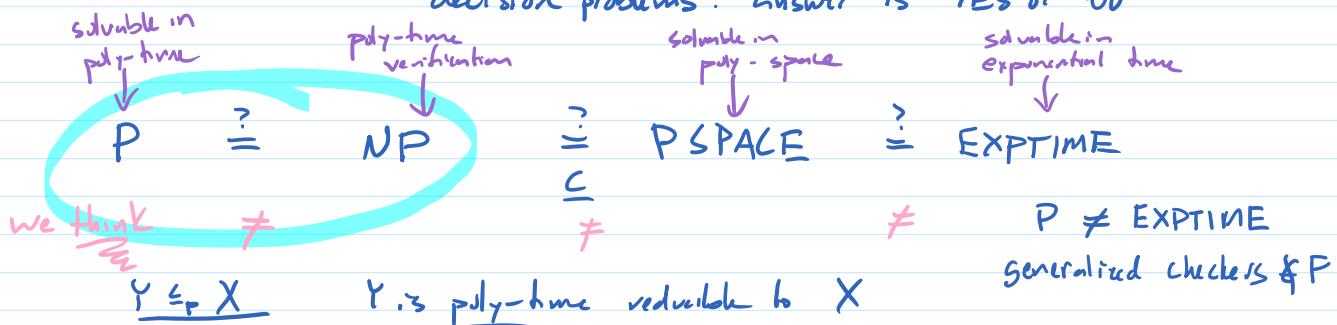 decision problems: answer is YES or NO
solvable in poly-time
poly-time verification
solvable in poly-space
solvable in exponential time
P ?= NP ?= PSPACE ?= EXPTIME
⊆
we think ≠ ≠ ≠
P ≠ EXPTIME
generalized checkers ∉ P
Y ≤p X Y is poly-time reducible to X